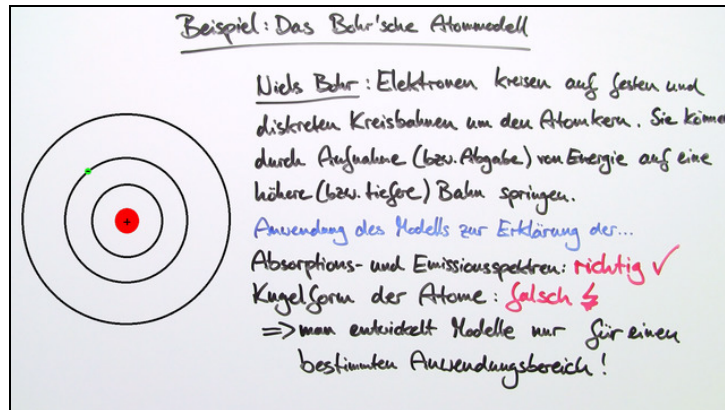 Beispiel: Das Bohr'sche Atommodell
Niels Bohr: Elektronen kreisen auf festen und
diskreten Kreisbahnen um den Atomkern. Sie könne
durch Aufnahme (bzw. Abgabe) von Energie auf eine
höhere (bzw. tiefere) Bahn springen.
Anwendung des Modells zur Erklärung der...
Absorptions- und Emissionsspektren: richtig ✓
Kugelform der Atome: falsch
=> man entwickelt Modelle nur für einen
bestimmten Anwendungsbereich!
+